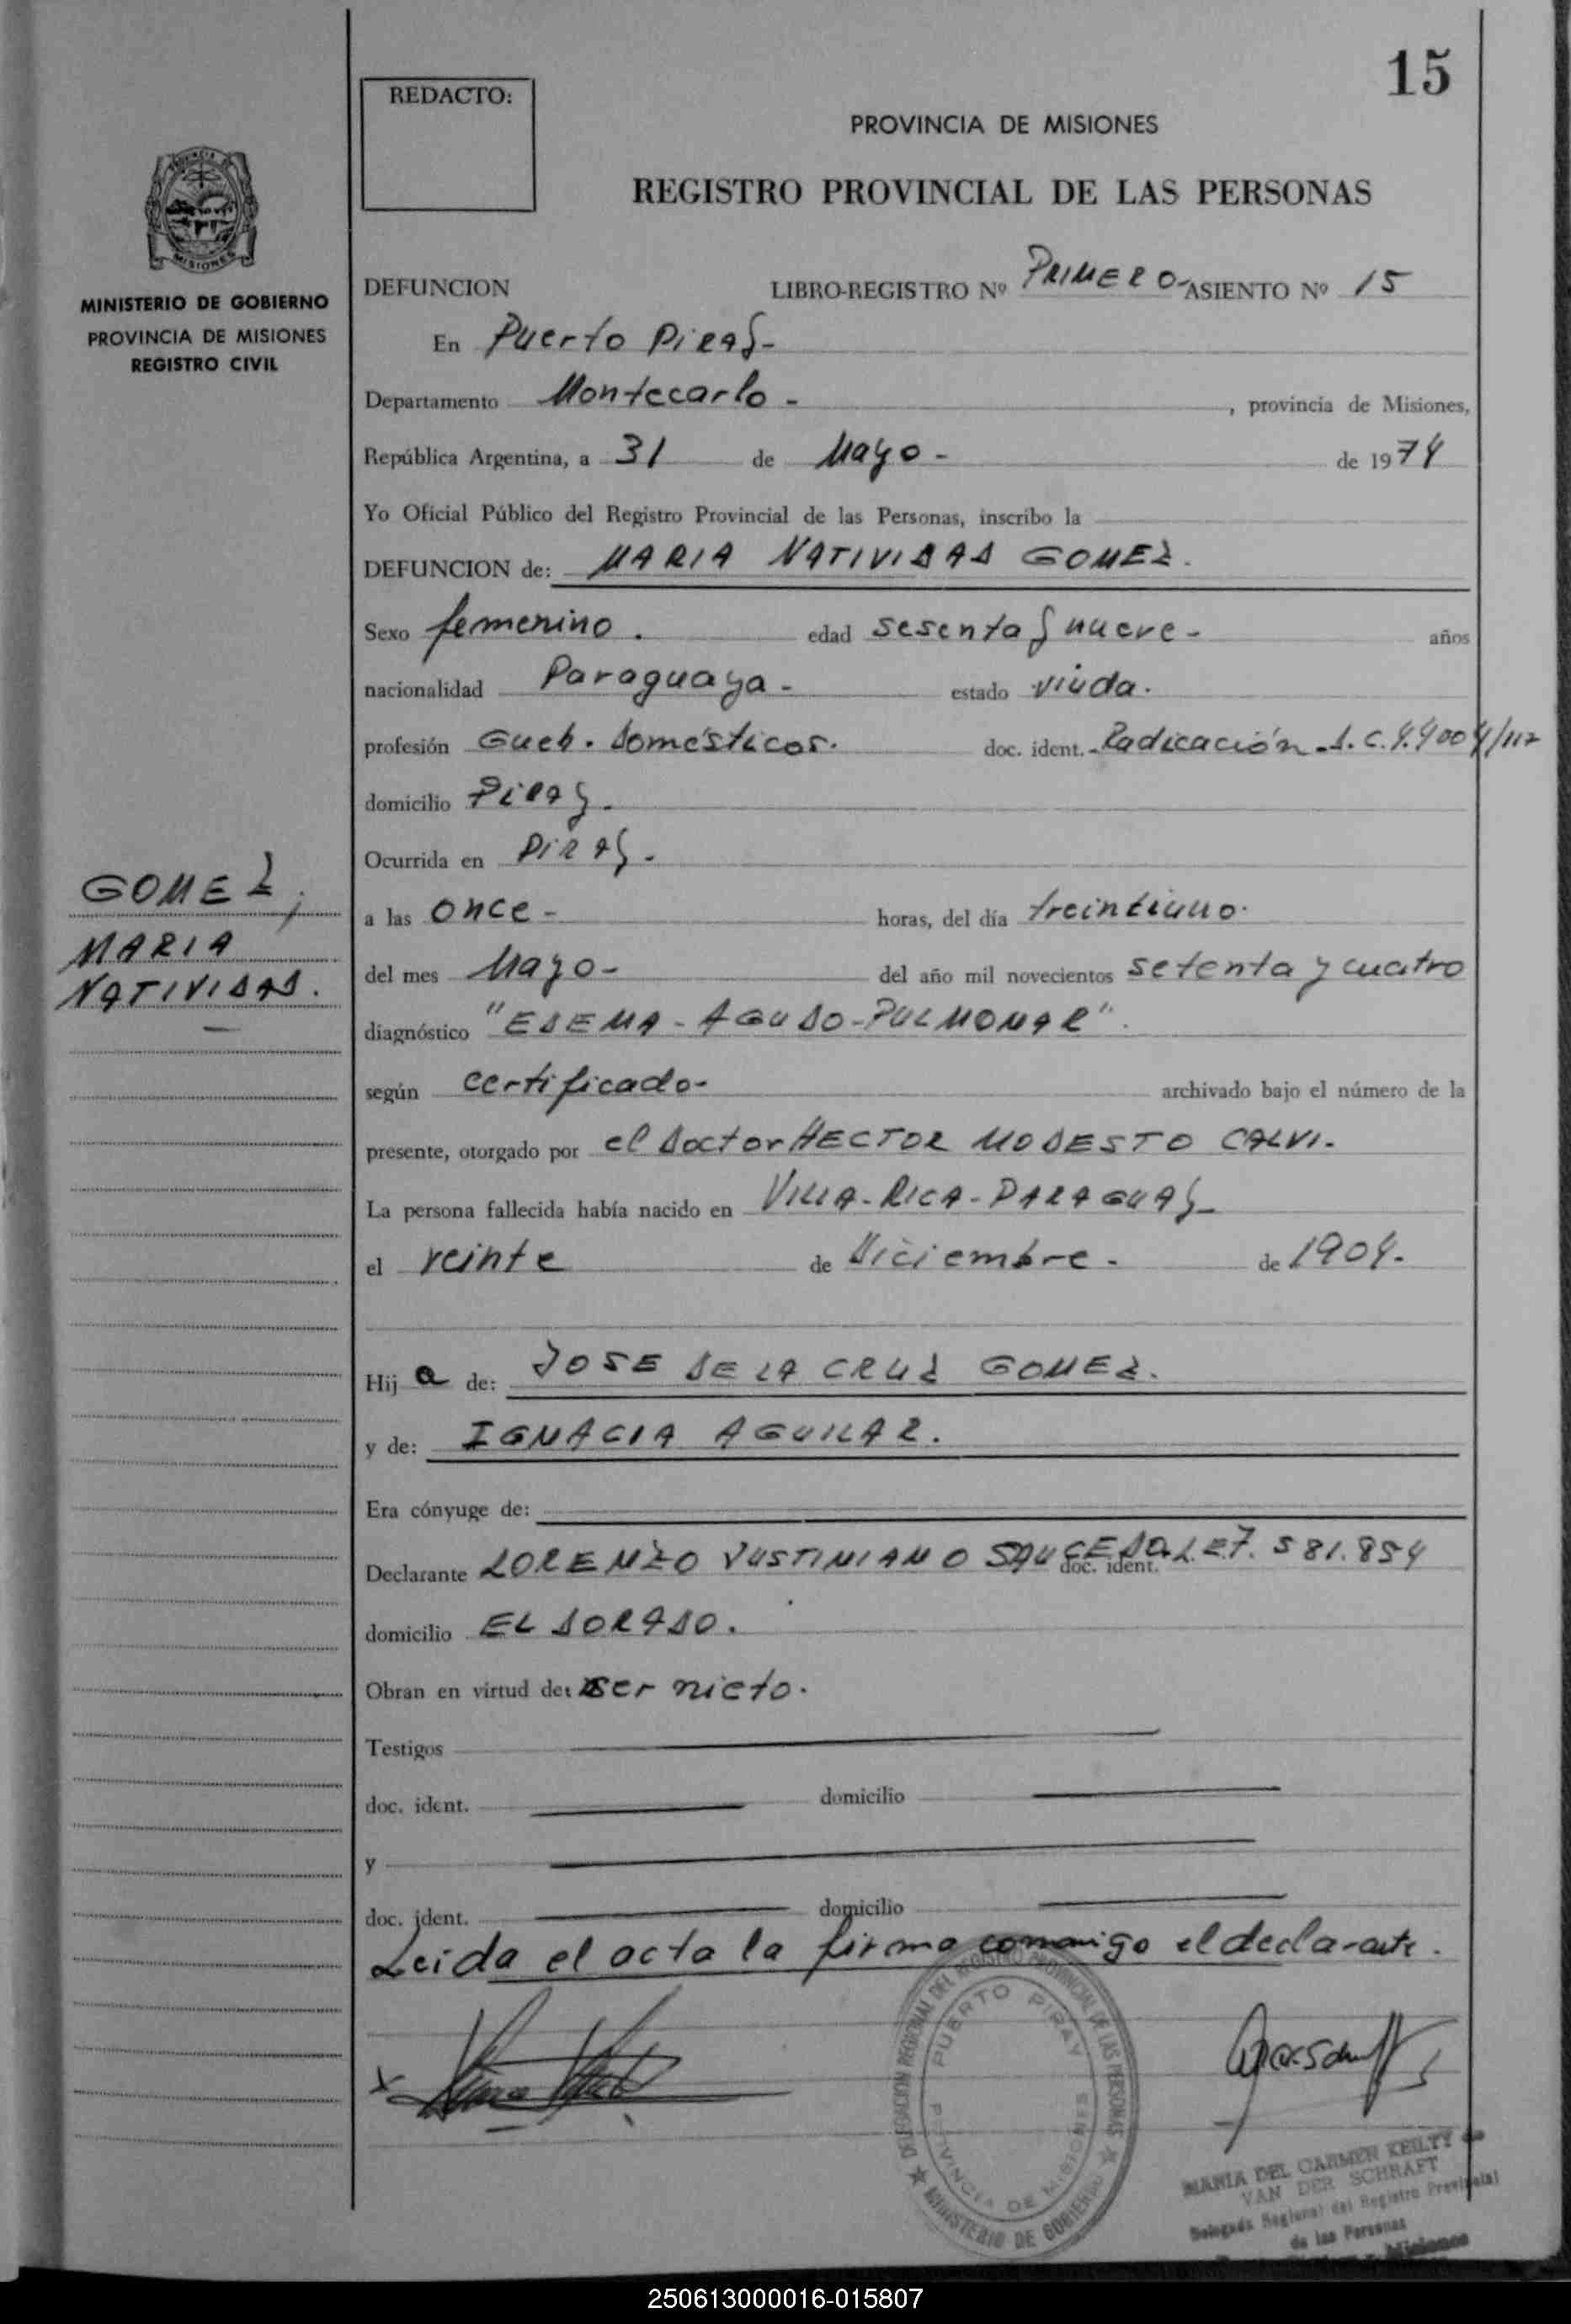 15
REDACTO:
PROVINCIA DE MISIONES
REGISTRO PROVINCIAL DE LAS PERSONAS
PROVINCIA DE
MISIONES
MINISTERIO DE GOBIERNO
PROVINCIA DE MISIONES
REGISTRO CIVIL
DEFUNCION LIBRO-REGISTRO Nº PRIMERO- ASIENTO Nº 15
En Puerto Piray-
Departamento Montecarlo - , provincia de Misiones,
República Argentina, a 31 de Mayo - de 1974
Yo Oficial Público del Registro Provincial de las Personas, inscribo la
DEFUNCION de: MARIA NATIVIDAD GOMEZ.
Sexo femenino. edad sesenta y nueve - años
nacionalidad Paraguaya - estado viuda.
profesión Queh. Domésticos. doc. ident. Radicación
domicilio Piray.
Ocurrida en Piray.
GOMEZ,
MARIA
NATIVIDAD.
a las once - horas, del día treintiuno.
del mes Mayo- del año mil novecientos setenta y cuatro
diagnóstico "EDEMA - AGUDO - PULMONAR".
según certificado- archivado bajo el número de la
presente, otorgado por el Doctor HECTOR MODESTO CALVI.
La persona fallecida había nacido en VILLA-RICA-PARAGUAY-
el veinte de Diciembre. de 1904.
Hij a de: JOSE DE LA CRUZ GOMEZ.
y de: IGNACIA AGUILAR.
Era cónyuge de:
Declarante LORENZO JUSTINIANO SAUCEDO doc. ident. L.E 7.581.854
domicilio EL DORADO.
Obran en virtud de: ser nieto.
Testigos
doc. ident. domicilio
y
doc. ident. domicilio
Leida el acta la firma conmigo el declarante.
DELEGACION REGIONAL DEL REGISTRO PROVINCIAL DE LAS PERSONAS
PUERTO PIRAY
PROVINCIA DE MISIONES
MINISTERIO DE GOBIERNO
MARIA DEL CARMEN KEILTY de
VAN DER SCHRAFT
Delegada Regional del Registro Provincial
de las Personas
Misiones
250613000016-015807